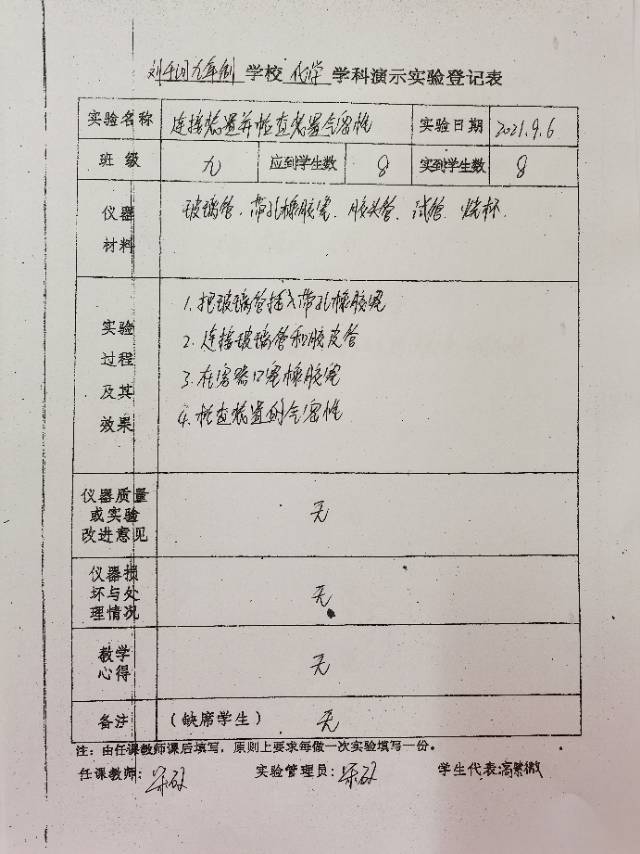 九年制 学校 化学 学科演示实验登记表
实验名称 连接装置并检查装置气密性 实验日期 2021.9.6
班级 九 应到学生数 8 实到学生数 8
仪器材料 玻璃管、带孔橡胶塞、胶头管、试管、烧杯.
实验过程及其效果
1.把玻璃管插入带孔橡胶塞
2.连接玻璃管和胶皮管
3.在容器口塞橡胶塞
4.检查装置的气密性
仪器质量或实验改进意见 无
仪器损坏与处理情况 无
教学心得 无
备注 (缺席学生) 无
注：由任课教师课后填写，原则上要求每做一次实验填写一份。
任课教师: 实验管理员: 学生代表:高繁微